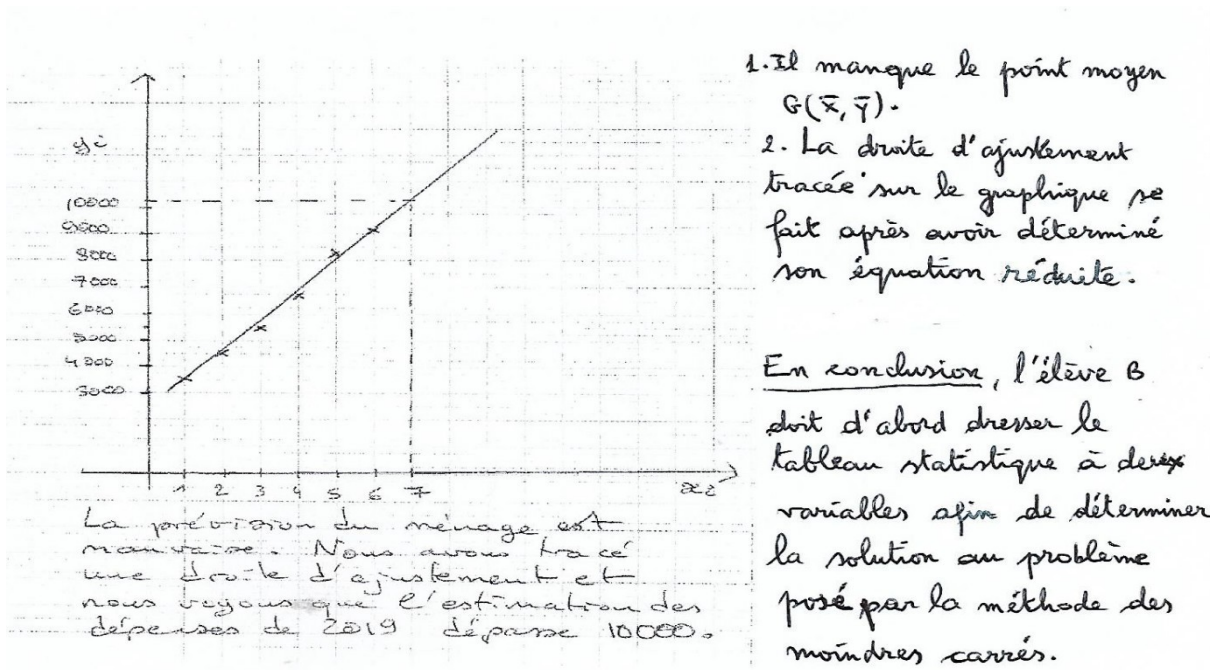 yi
10000
9000
8000
7000
6000
5000
4000
3000
1 2 3 4 5 6 7
xi
La prévision du ménage est
mauvaise. Nous avons tracé
une droite d'ajustement et
nous voyons que l'estimation des
dépenses de 2019 dépasse 10000.
1. Il manque le point moyen
G(x̄, ȳ).
2. La droite d'ajustement
tracée sur le graphique se
fait après avoir déterminé
son équation réduite.
En conclusion, l'élève B
doit d'abord dresser le
tableau statistique à deux
variables afin de déterminer
la solution au problème
posé par la méthode des
moindres carrés.